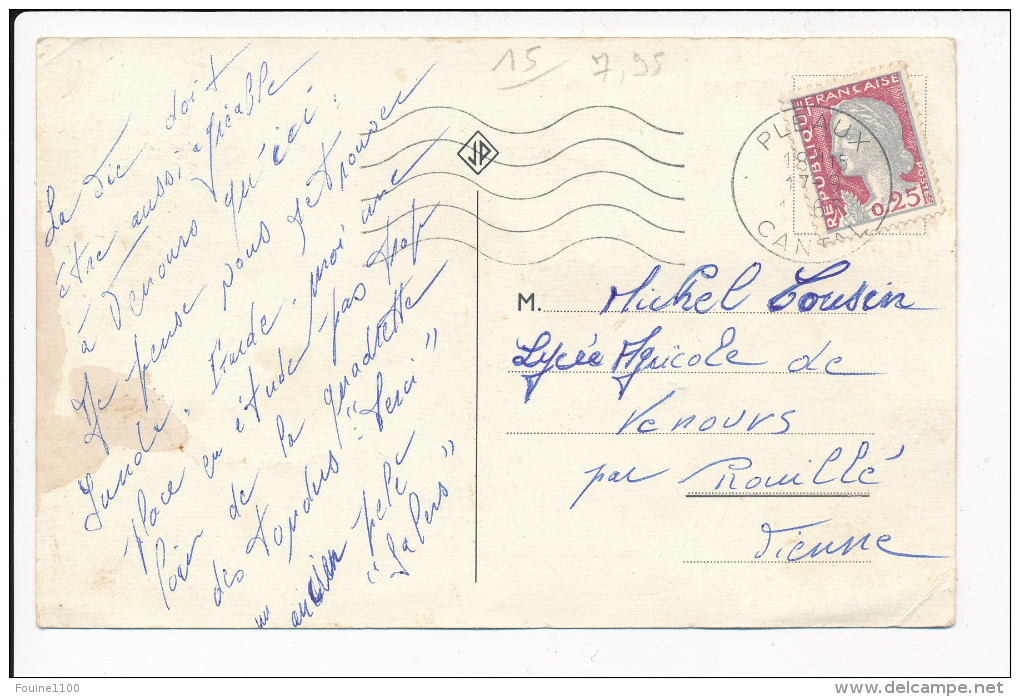 15 7,95
La vie doit
être aussi agréable
à Venours qu'ici.
Je pense vous retrouver
Lundi. Garde-moi une
place en étude pas trop
loin de la quadrette
des tondus "
un ancien pelé
"
JP
RÉPUBLIQUE FRANÇAISE
POSTES
0,25
PLEAUX
CANTAL
M. Michel Cousin
Lycée Agricole de
Venours
par Rouillé
Vienne
Fouine1100
delcampe.net